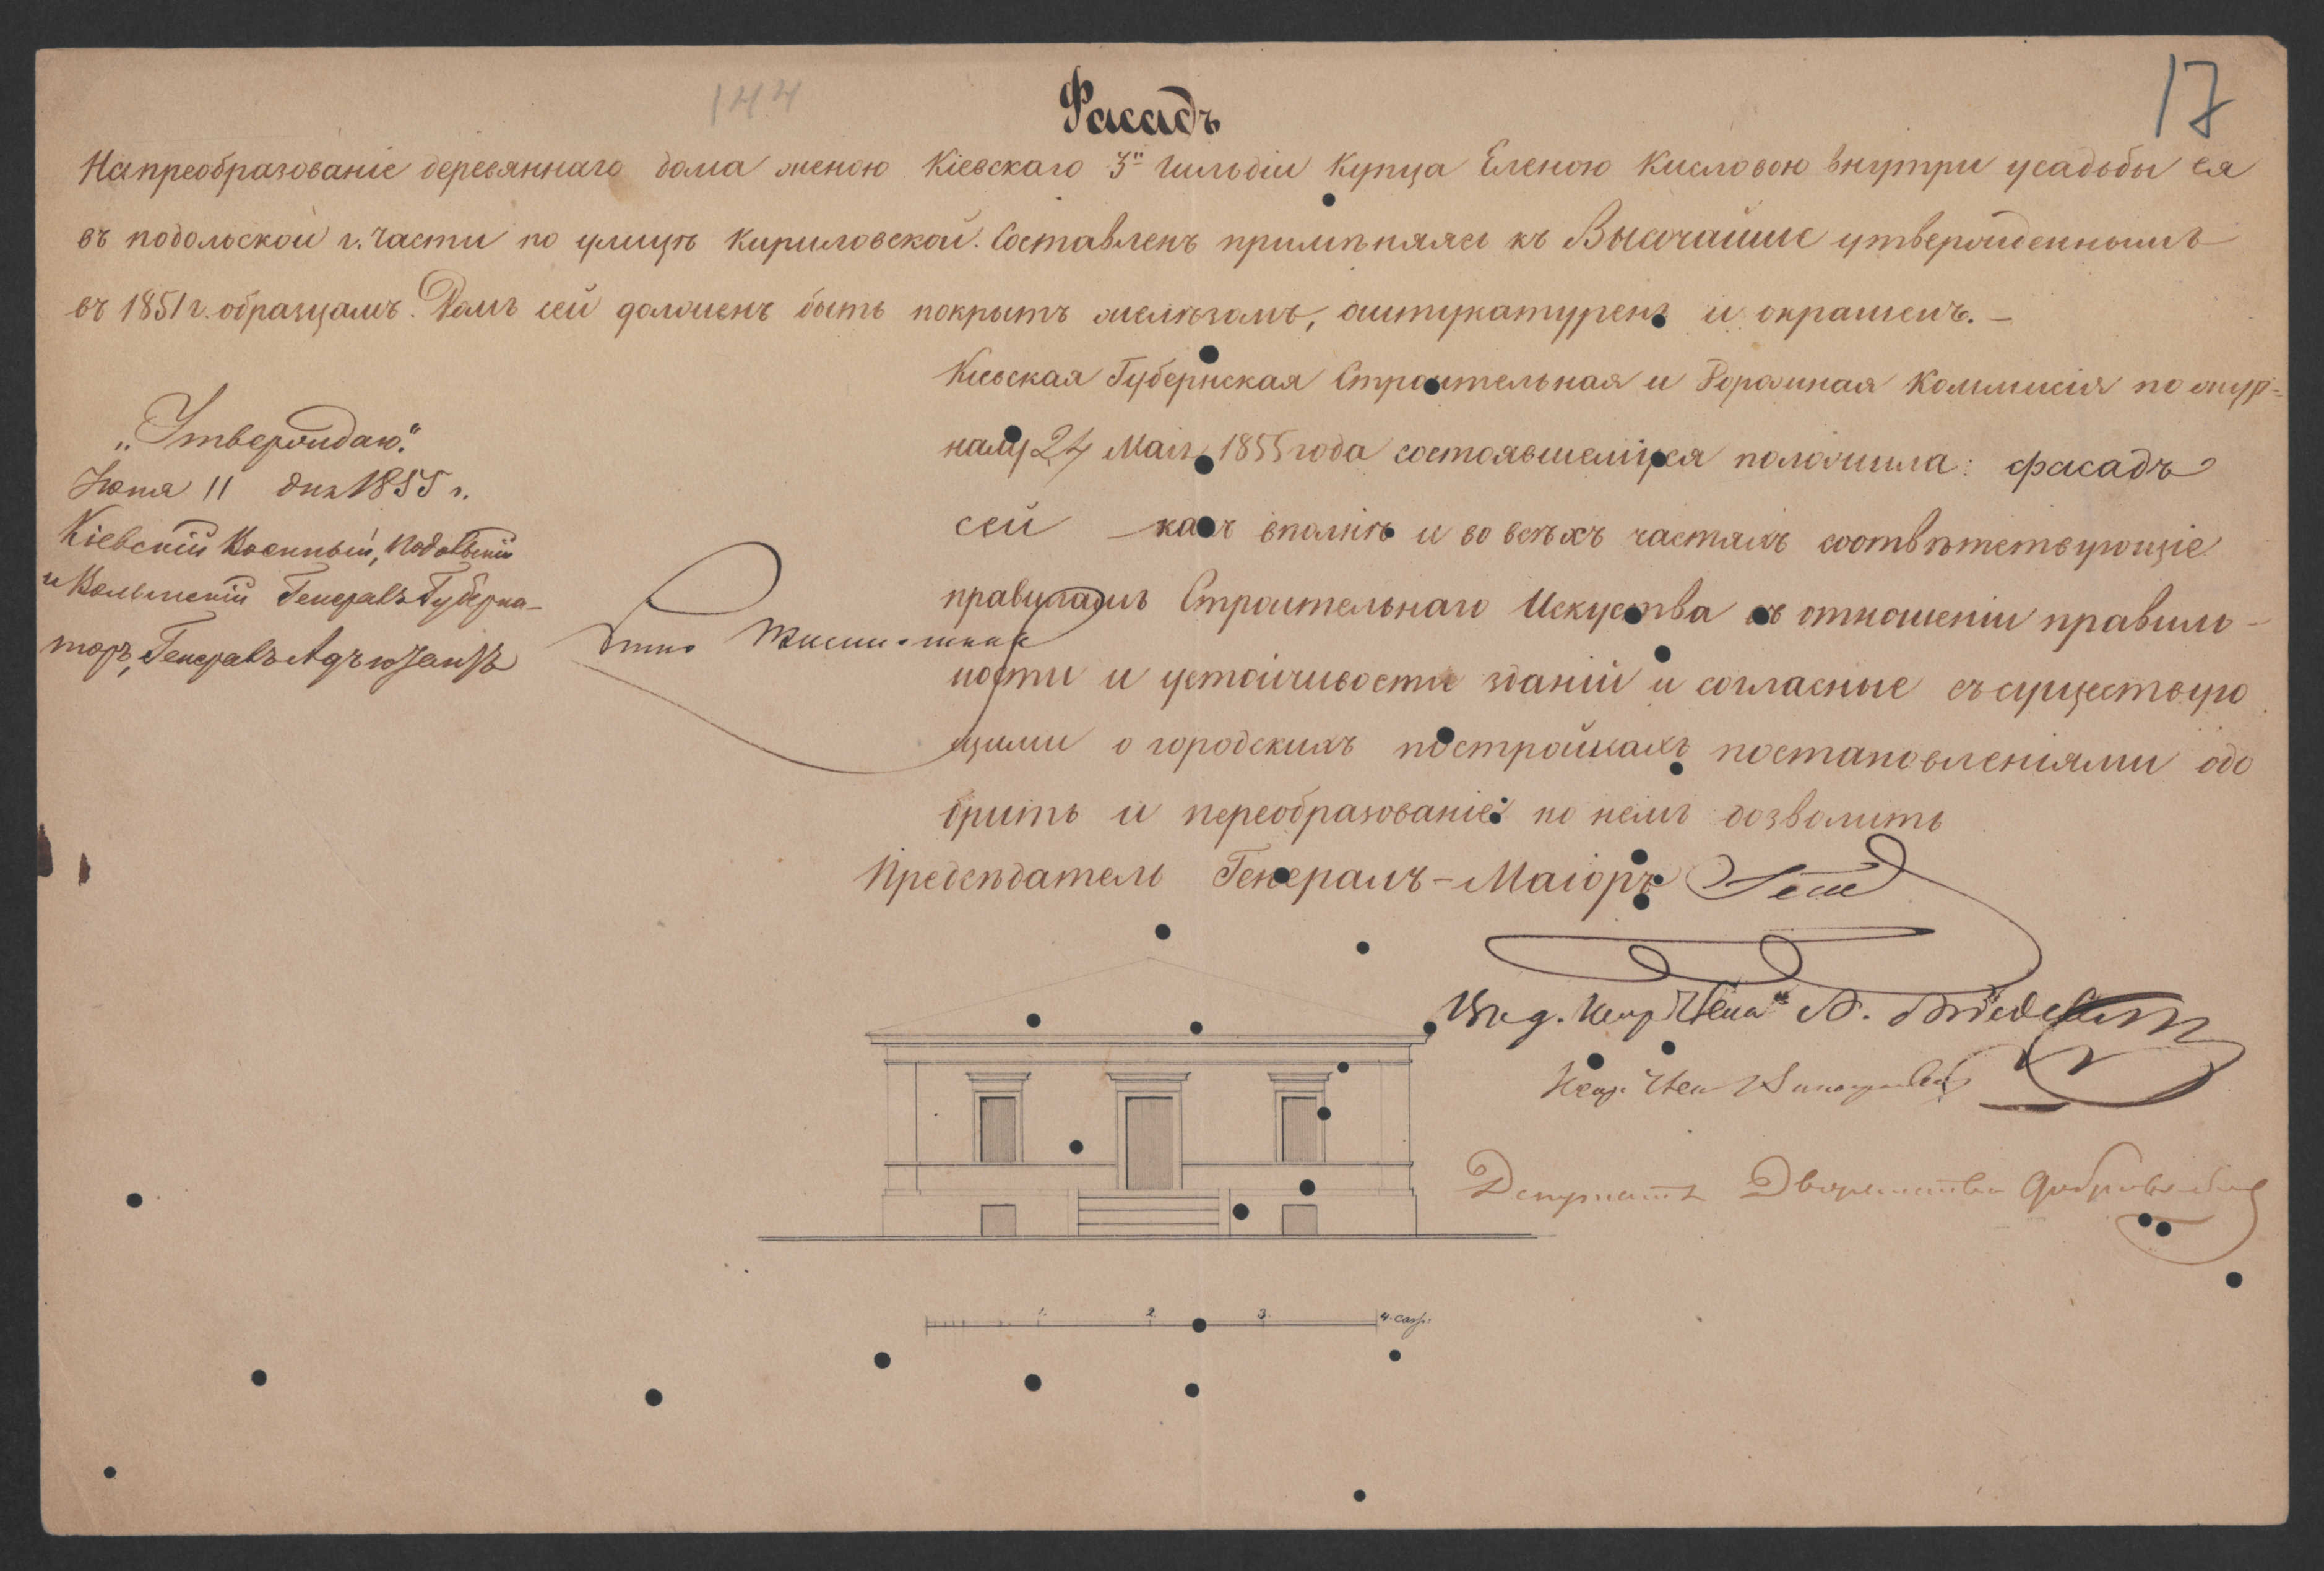 144
17
Фасадъ
На преобразованіе деревяннаго дома женою Кіевскаго 3й Гильдіи Купца Еленою Кисловою внутри усадьбы ея
въ подольской г. части по улицѣ Кириловской. Составленъ примѣняясь къ Высочайше утвержденнымъ
въ 1851 г. образцамъ. Домъ сей долженъ быть покрытъ желѣзомъ, оштукатуренъ и окрашенъ. —
Кіевская Губернская Строительная и Дорожная Коммисія по жур=
налу 24 Маія 1855 года состоявшемуся положила: фасадъ
сей какъ вполнѣ и во всѣхъ частяхъ соотвѣтствующіе
правиламъ Строительнаго Искуства въ отношеніи правиль-
ности и устойчивости зданій и согласные съ существую
щими о городскихъ постройкахъ постановленіями одо
брить и переобразованіе по немъ дозволить
„Утверждаю."
Іюня 11 дня 1855 г.
Кіевскій Военный, Подольскій
и Волынскій Генералъ Губерна-
торъ, Генералъ Адъютантъ
Предсѣдатель Генералъ-Маіоръ
Депутатъ Дворянства
1. 2 3. 4. саж.